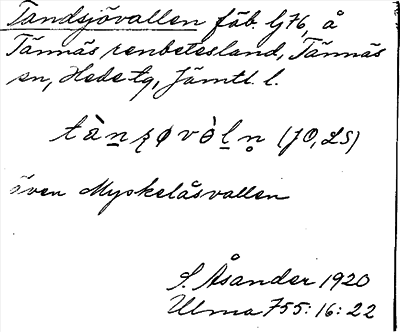 Tandsjövallen fäb. lj 76, å
Tännäs renbetesland, Tännäs
sn, Hede tg, Jämtl. l.
(JO, LS)
även Myskelåsvallen
S. Åsander 1920
Ulma 755:16:22